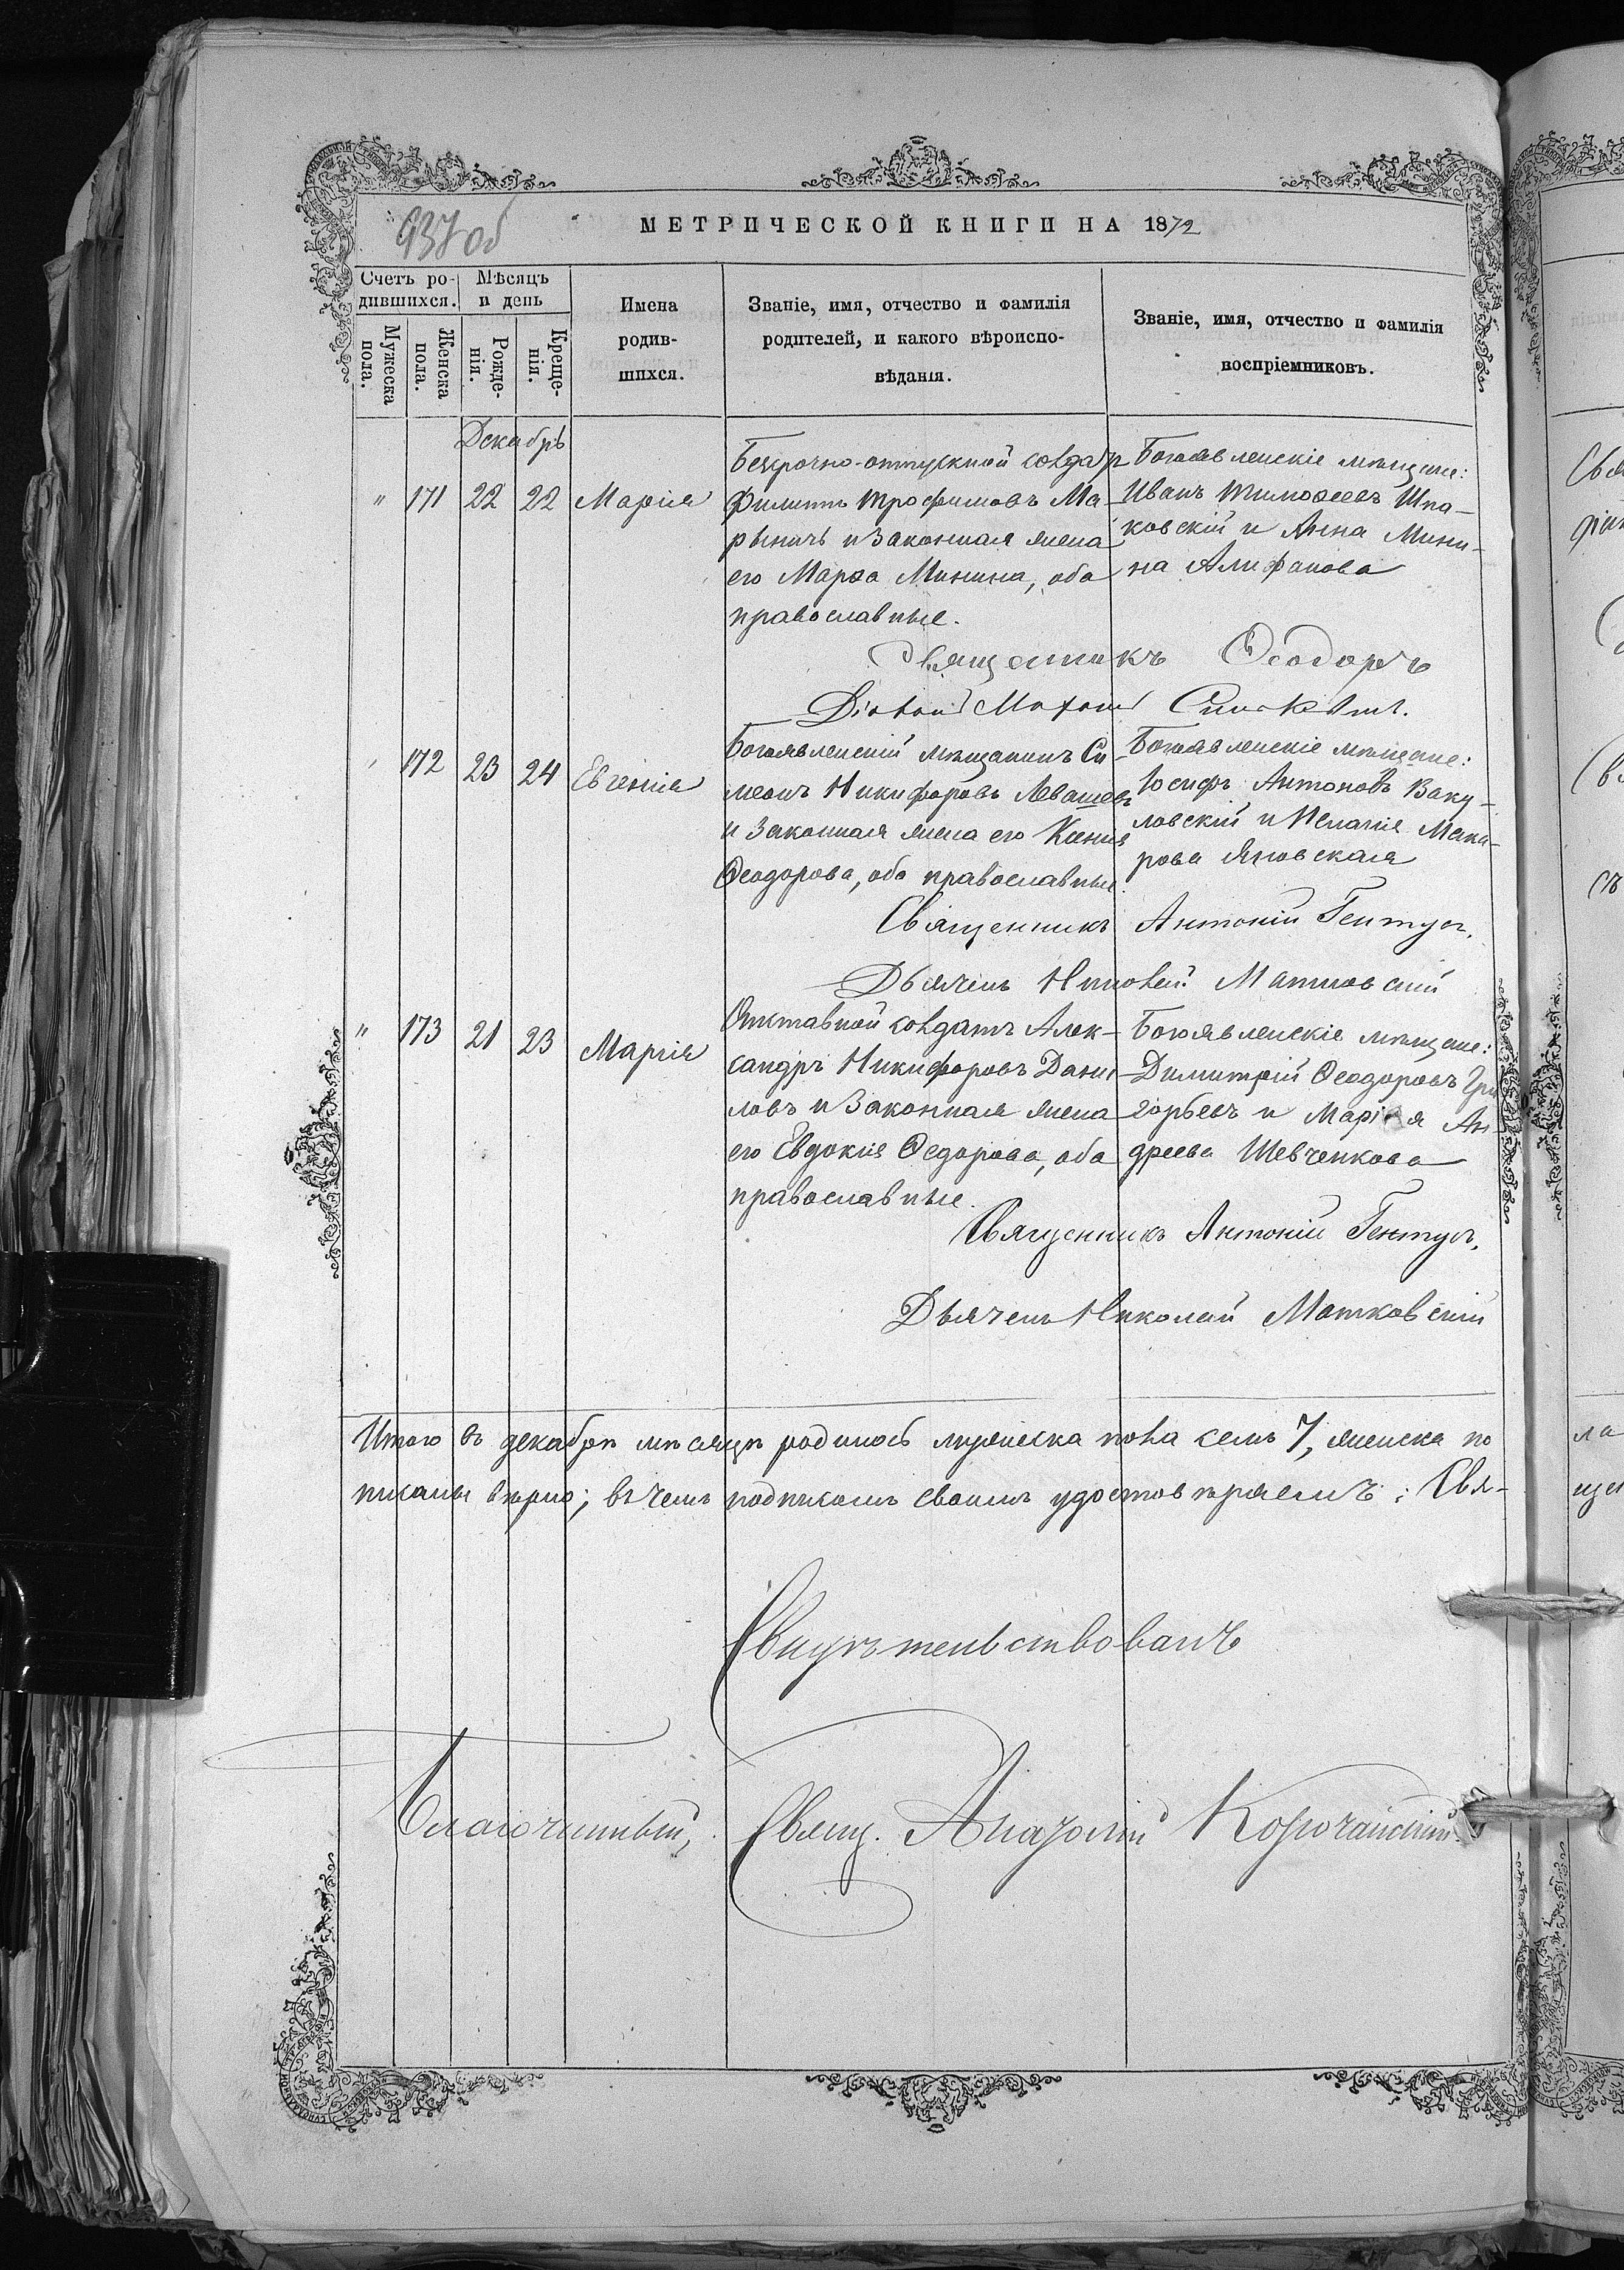 937 об
МЕТРИЧЕСКОЙ КНИГИ НА 1872
Счетъ ро-
дившихся.
Мѣсяцъ
и день
Мужеска
пола.
Женска
пола.
Рожде-
нія.
Креще-
нія.
Имена
родив-
шихся.
Званіе, имя, отчество и фамилія
родителей, и какого вѣроиспо-
вѣданія.
Званіе, имя, отчество и фамилія
воспріемниковъ.
Декабрь
" 171 22 22 Марія
Безсрочно-отпускной солдатъ
Филиппъ Трофимовъ Ма-
рыничъ и законная жена
его Марѳа Минина, оба
православные.
Богоявленскіе мѣщане:
Иванъ Тимоѳеевъ Шпа-
ковскій и Анна Мини-
на Алифанова
Священникъ Ѳеодоръ
172 23 24 Евгенія
Богоявленскій мѣщанинъ Си-
меонъ Никифоровъ Левашевъ
и законная жена его Ксенія
Ѳеодорова, оба православные.
Богоявленскіе мѣщане:
Іосифъ Антоновъ Ваку-
ловскій и Пелагія Мака-
рова Яновская
Священникъ Антоній Гентуъ.
Дьячекъ Николай Матковскій
" 173 21 23 Марія
Отставной солдатъ Алек-
сандръ Никифоровъ Дани-
ловъ и законная жена
его Евдокія Ѳедорова, оба
православные.
Богоявленскіе мѣщане:
Димитрій Ѳеодоровъ Гри
горьевъ и Марія Ан-
дреева Шевченкова
Священникъ Антоній
Дьячекъ Николай Матковскій
Итого въ декабрѣ мѣсяцѣ родилось мужеска пола семь 7, женска по
писаны вѣрно; въ чемъ подписомъ своимъ удостовѣряемъ: Свя-
Свидѣтельствовалъ
Благочинный, Свящ. Анатолій Корочанскій